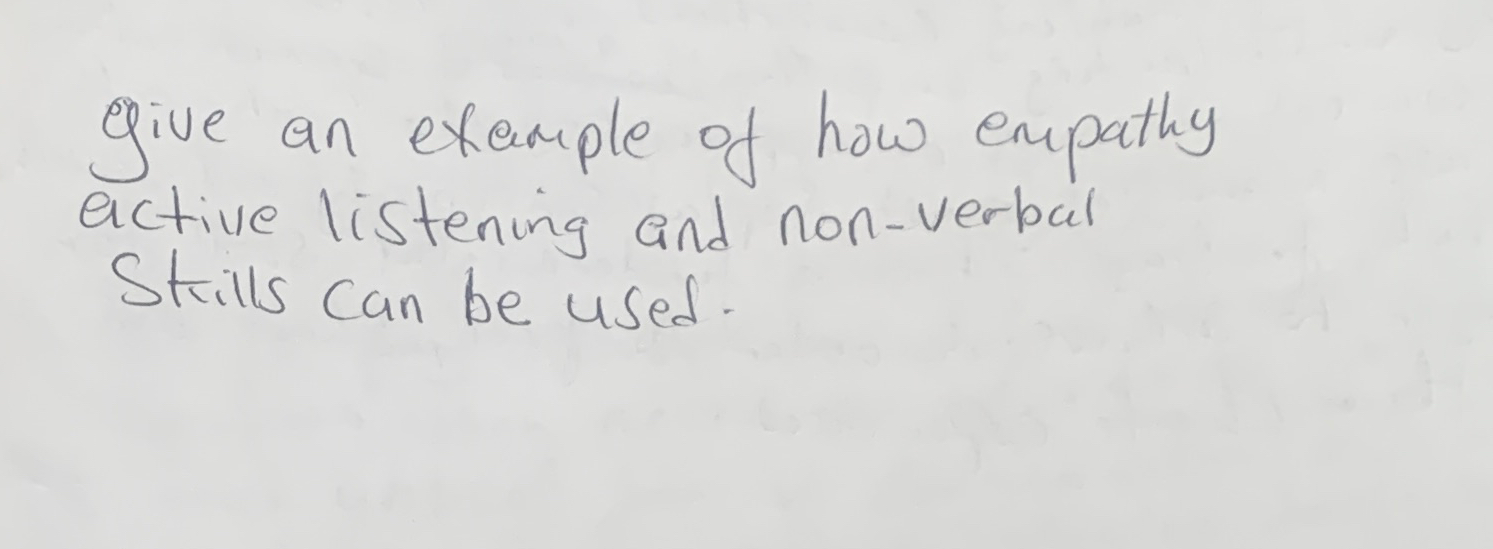 give an example of how empathy
active listening and non-verbal
Skills can be used.